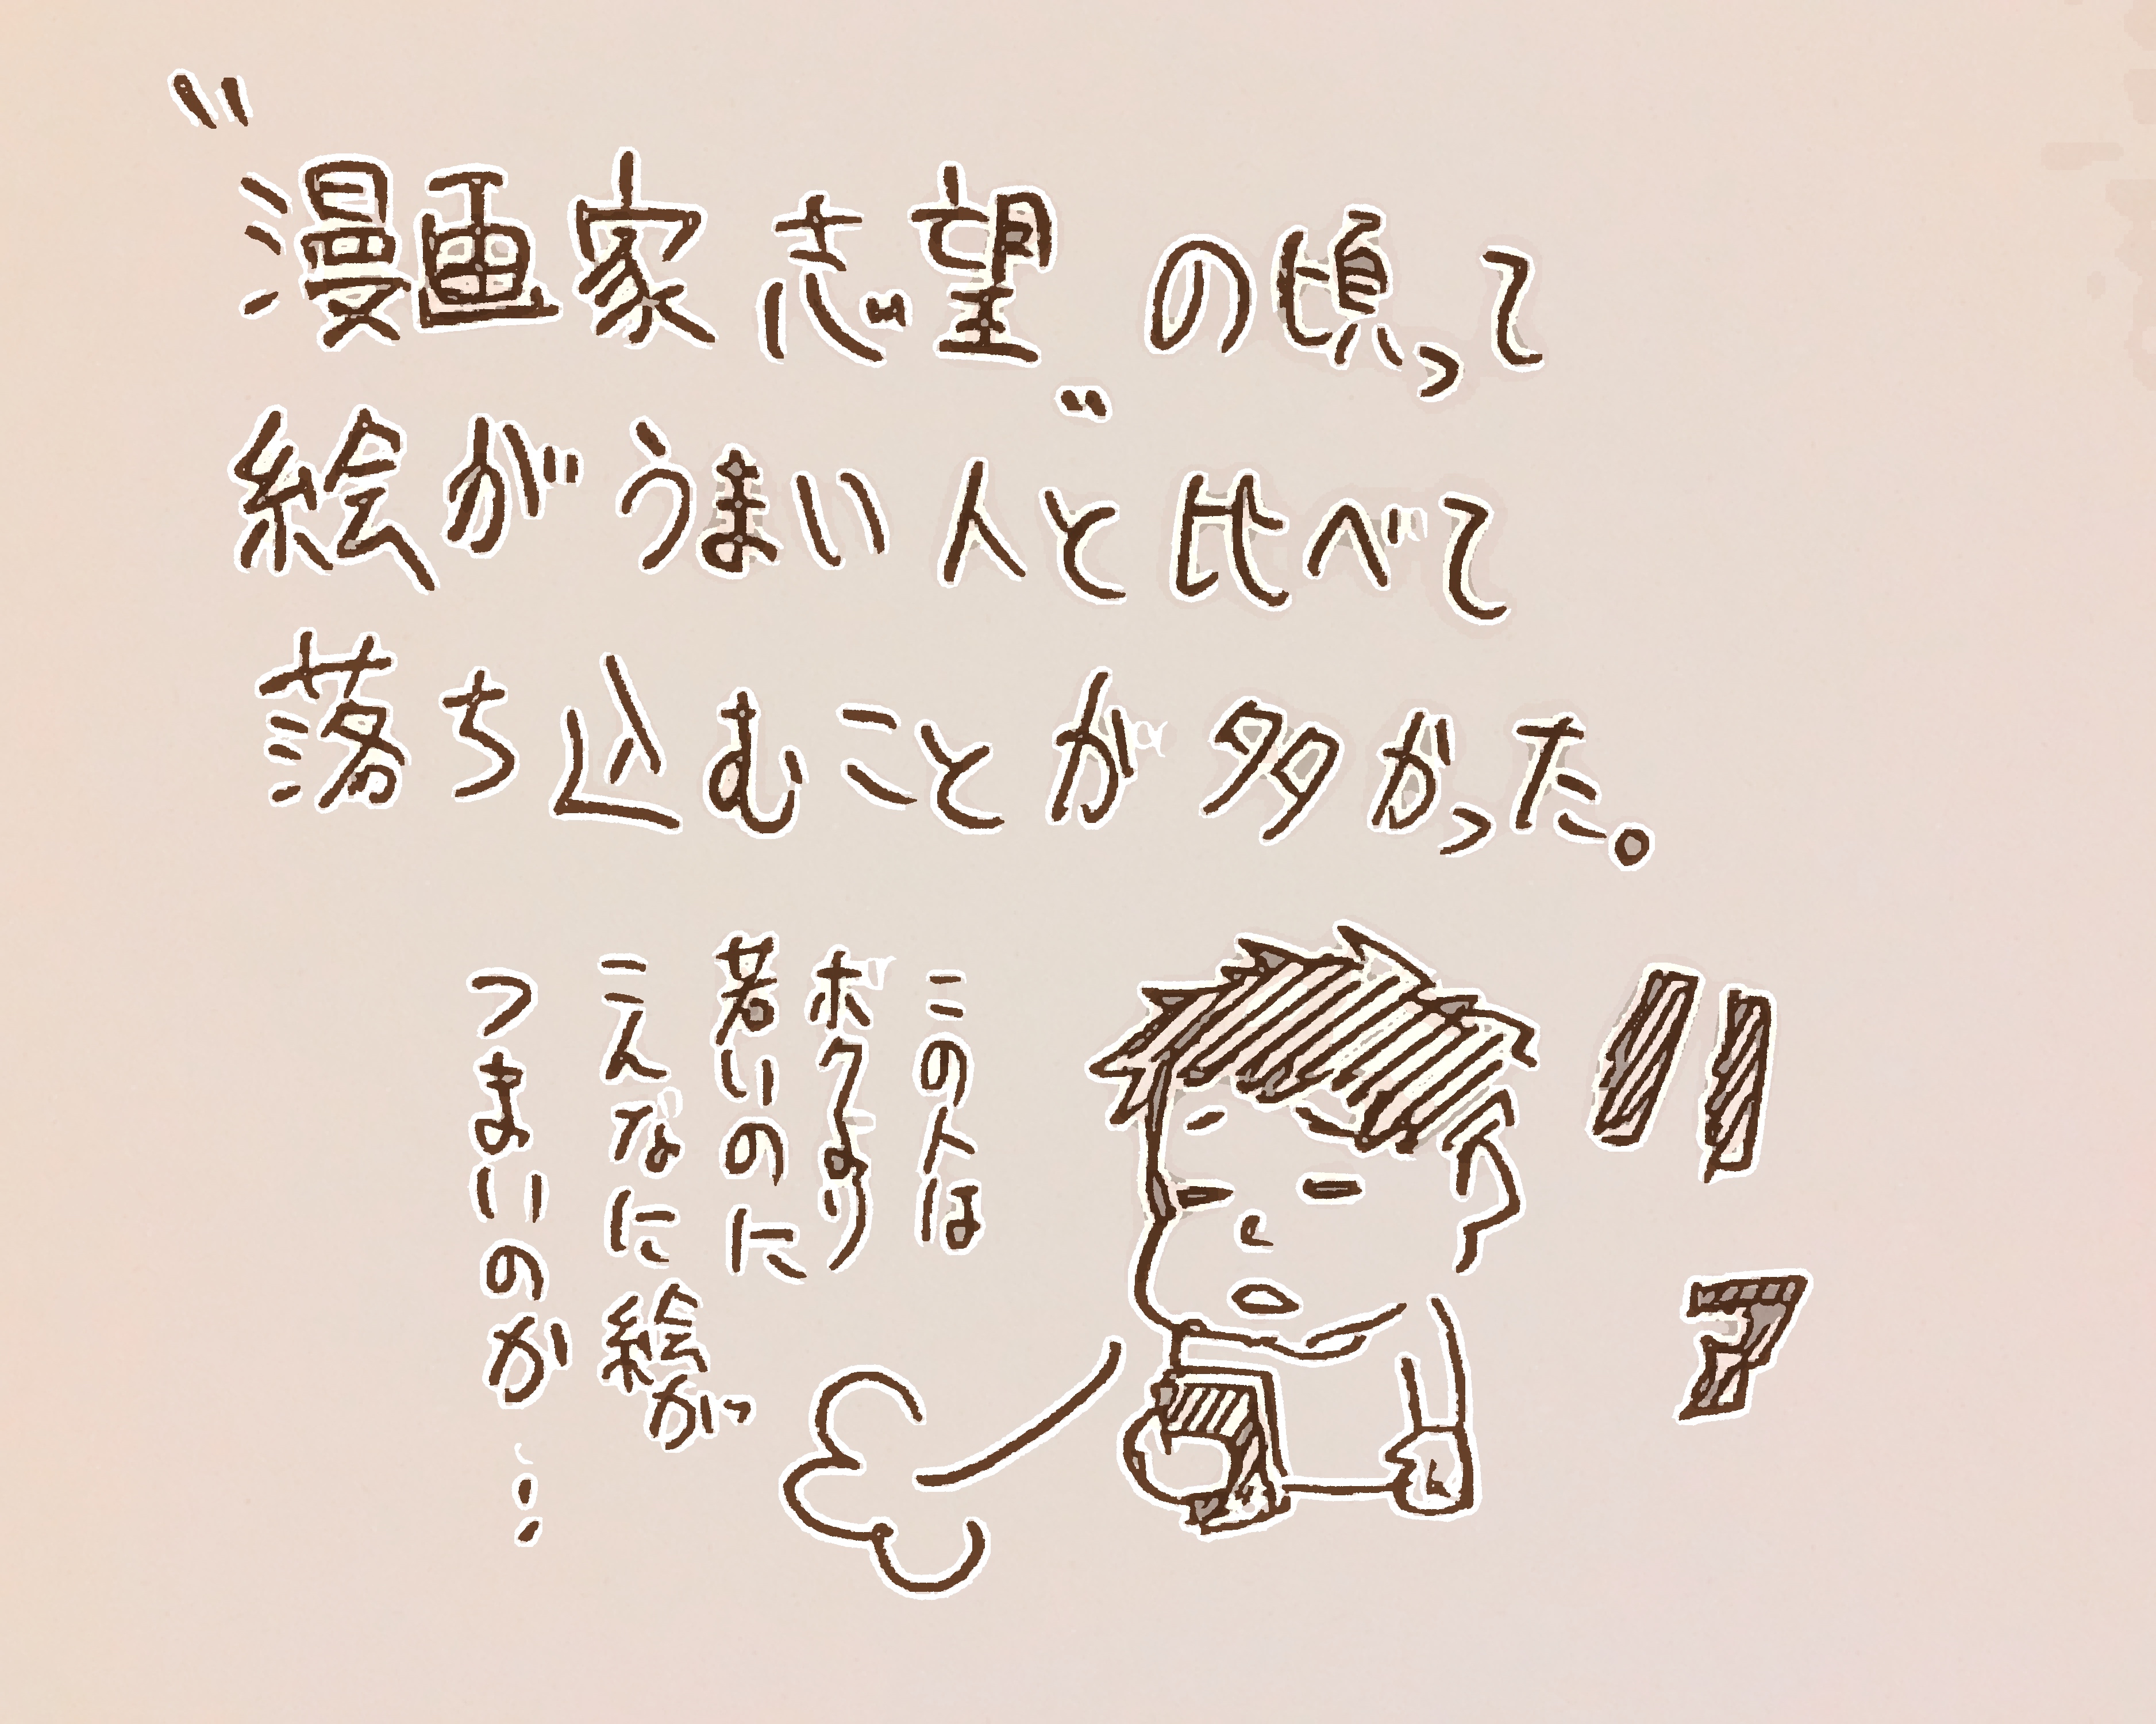 "漫画家志望"の頃って
絵がうまい人と比べて
落ち込むことが多かった。
ハァ
この人は
ボクより
若いのに
こんなに絵が
うまいのか…